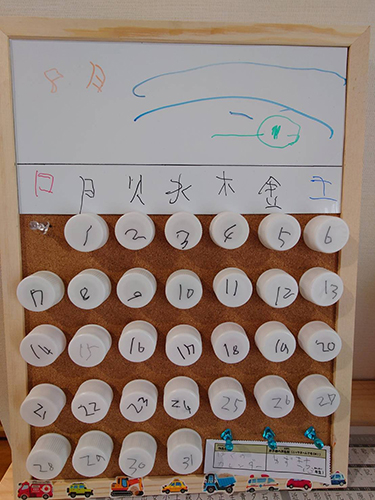 8月
日 月 火 水 木 金 土
1 2 3 4 5 6
7 8 9 10 11 12 13
14 15 16 17 18 19 20
21 22 23 24 25 26 27
28 29 30 31